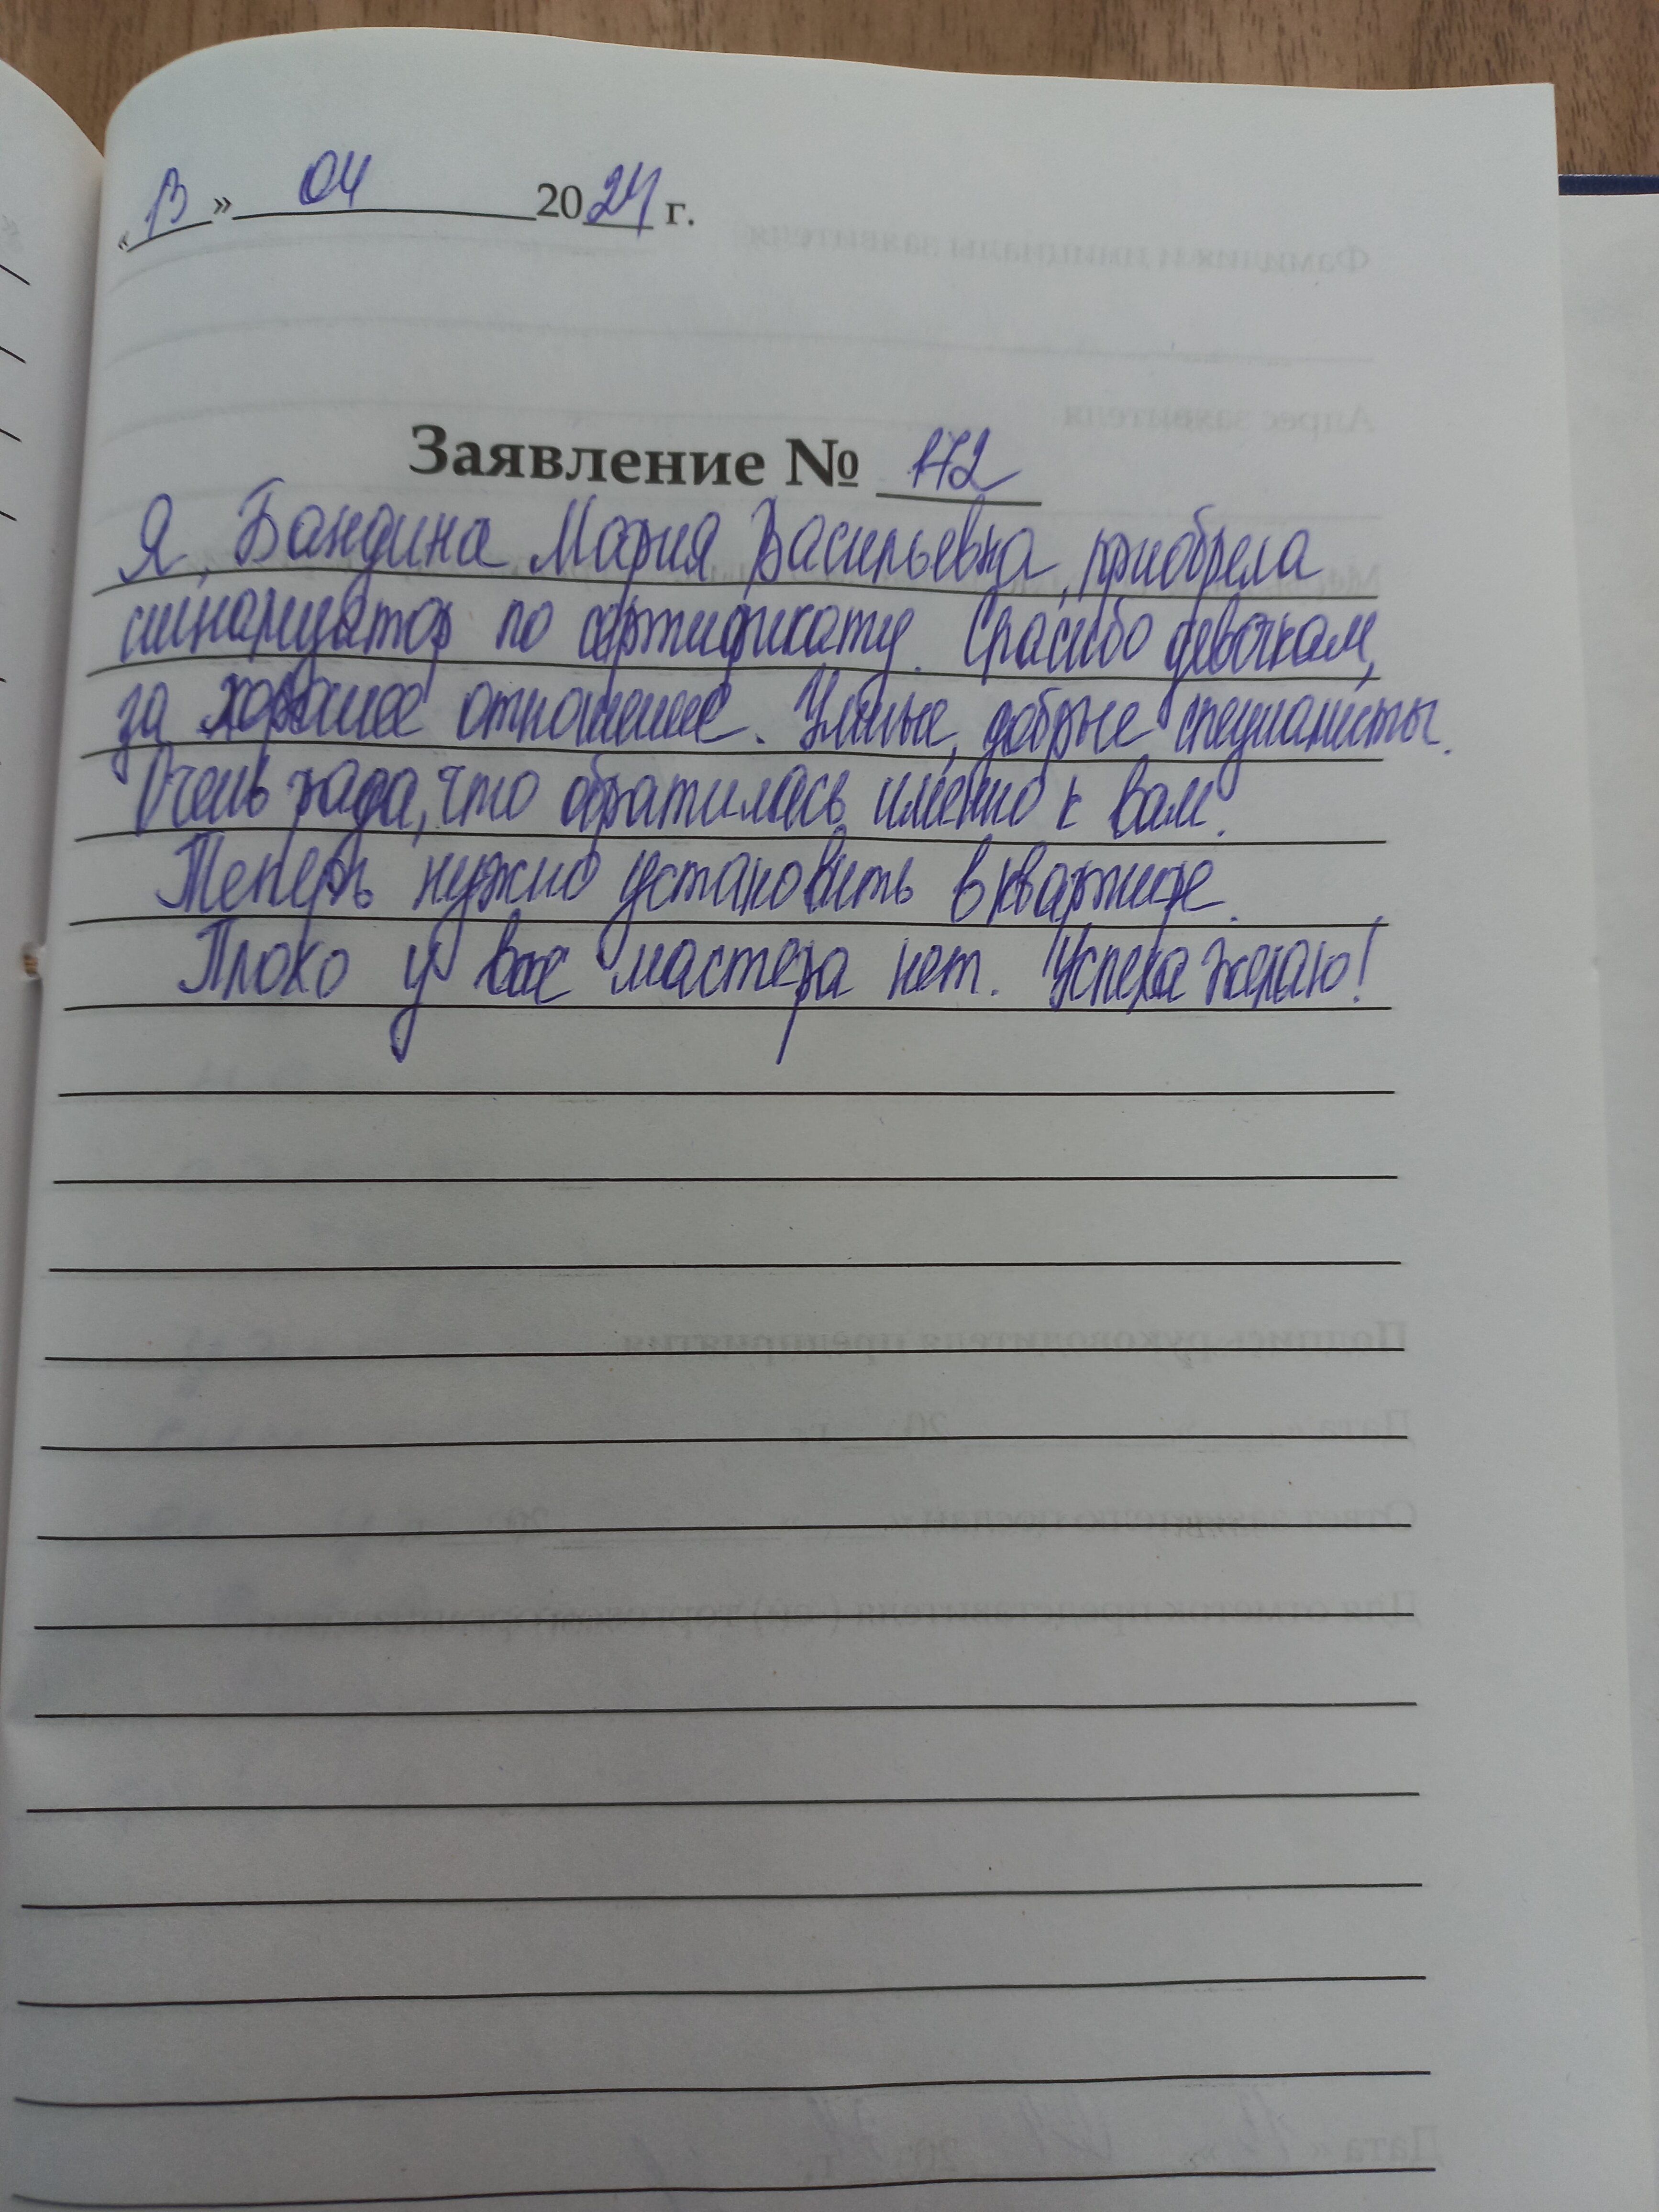 «13» 04 2024 г.
Заявление № 172
Я, Бандина Мария Васильевна, приобрела
сигнализатор по сертификату. Спасибо девочкам,
за хорошее отношение. Умные, добрые специалисты.
Очень рада, что обратилась именно к вам.
Теперь нужно установить в квартире.
Плохо у вас мастера нет. Успеха желаю!